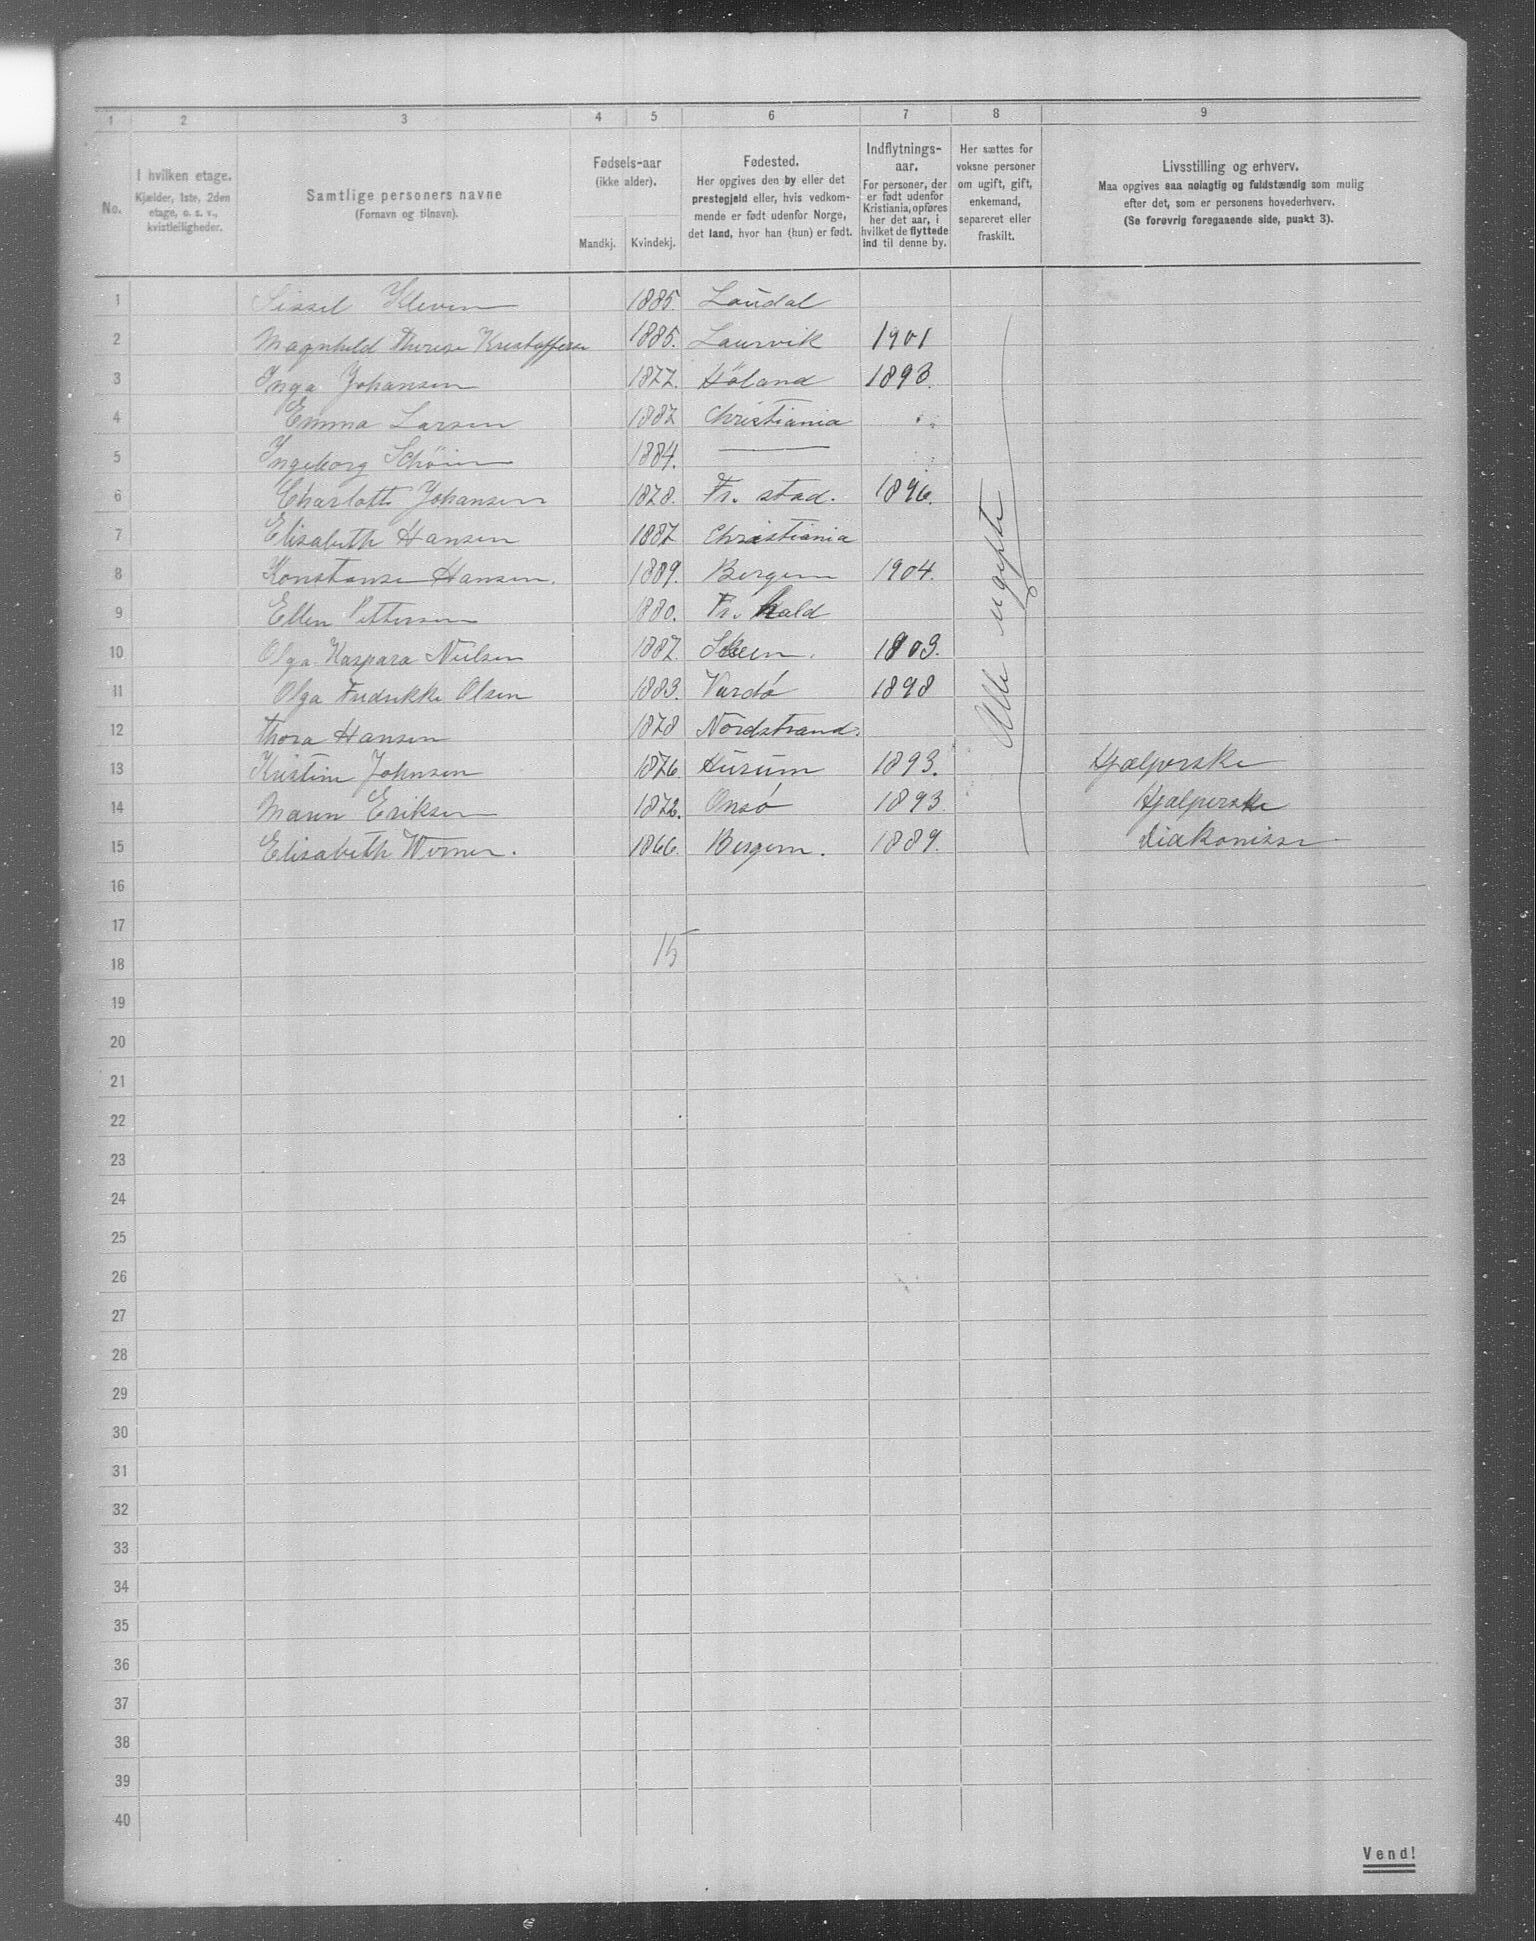 1 2 3 4 5 6 7 8 9
No.
I hvilken etage.
Kjælder, 1ste, 2den
etage, o. s. v.,
kvistleiligheder.
Samtlige personers navne
(Fornavn og tilnavn).
Fødsels-aar
(ikke alder).
Mandkj. Kvindekj.
Fødested.
Her opgives den by eller det
prestegjeld eller, hvis vedkom-
mende er født udenfor Norge,
det land, hvor han (hun) er født.
Indflytnings-
aar.
For personer, der
er født udenfor
Kristiania, opføres
her det aar, i
hvilket de flyttede
ind til denne by.
Her sættes for
voksne personer
om ugift, gift,
enkemand,
separeret eller
fraskilt.
Livsstilling og erhverv.
Maa opgives saa nøiagtig og fuldstændig som mulig
efter det, som er personens hovederhverv.
(Se forøvrig foregaaende side, punkt 3).
1 Sissel Kleven 1885. Laudal
2 Magnhild Therese Kristoffersen 1885. Laurvik 1901
3 Inga Johansen 1877. Høland 1893.
4 Emma Larsen 1887 Christiania
5 Ingeborg Schøien 1884. —
6 Charlotte Johansen 1878. Fr. stad. 1896.
7 Elisabeth Hansen 1887 Christiania
8 Konstanse Hansen. 1889. Bergen 1904.
9 Ellen Pettersen 1880. Fr. hald
10 Olga Kaspara Nielsen 1887. Skien. 1903.
11 Olga Fredrikke Olsen 1883. Vardø 1898
12 Thora Hansen 1878 Nordstrand.
13 Kristine Johnsen 1876. Husum 1893. Hjælperske
14 Maren Eriksen 1872. Onsø 1893 Hjælperske
15 Elisabeth Werner. 1866. Bergen. 1889. Diakonisse
Alle ugifte
16
17
15
18
19
20
21
22
23
24
25
26
27
28
29
30
31
32
33
34
35
36
37
38
39
40
Vend!